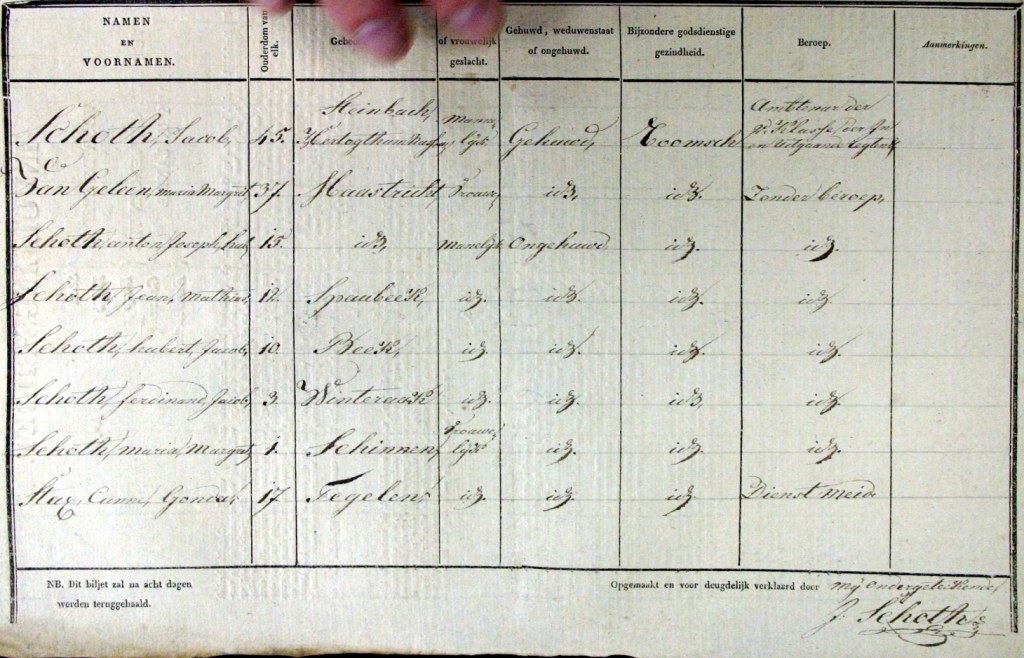 NAMEN EN VOORNAMEN. Ouderdom van elk. of vrouwelijk geslacht. Gehuwd, weduwenstaat of ongehuwd. Bijzondere godsdienstige gezindheid. Beroep. Aanmerkingen.
Schoth, Jacob, 45. Steinbach, Hertogthum Manne,lijk Gehuwd, Roomsch Ambtenaar der Klasse, der In en uitgaande
Van Geleen, maria Margrit, 37. Maastricht, Vrouwe, id3, id3. Zonder beroep,
Schoth, anton, Joseph, 15. id3, Manelijk Ongehuwd id3. id3.
Schoth, Jean, Mathias, 12. Spaubeek, id3. id3. id3. id3.
Schoth, hubert, Jacob, 10. Beek, id3. id3. id3. id3.
Schoth, ferdinand, Jacob, 3. Winteraak id3. id3. id3, id3.
Schoth, Maria, Margrit, 1. Schinnen, Vrouwe,lijk id3. id3. id3.
Stax, Gonda, 17. Tegelen, id3. id3. id3. Dienst meid.
NB. Dit biljet zal na acht dagen
worden teruggehaald.
Opgemaakt en voor deugdelijk verklaard door mij Ondergeteekende,
J. Schoth